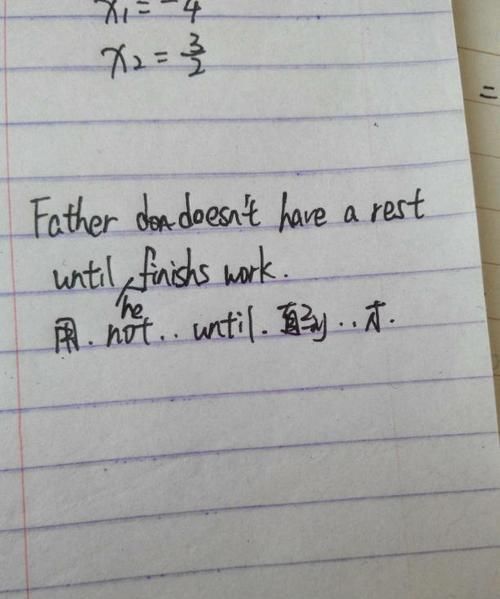 x₁ = -4
x₂ = 3/2
=
Father doesn't have a rest
until he finishs work.
用. not.. until. 直到.. 才.